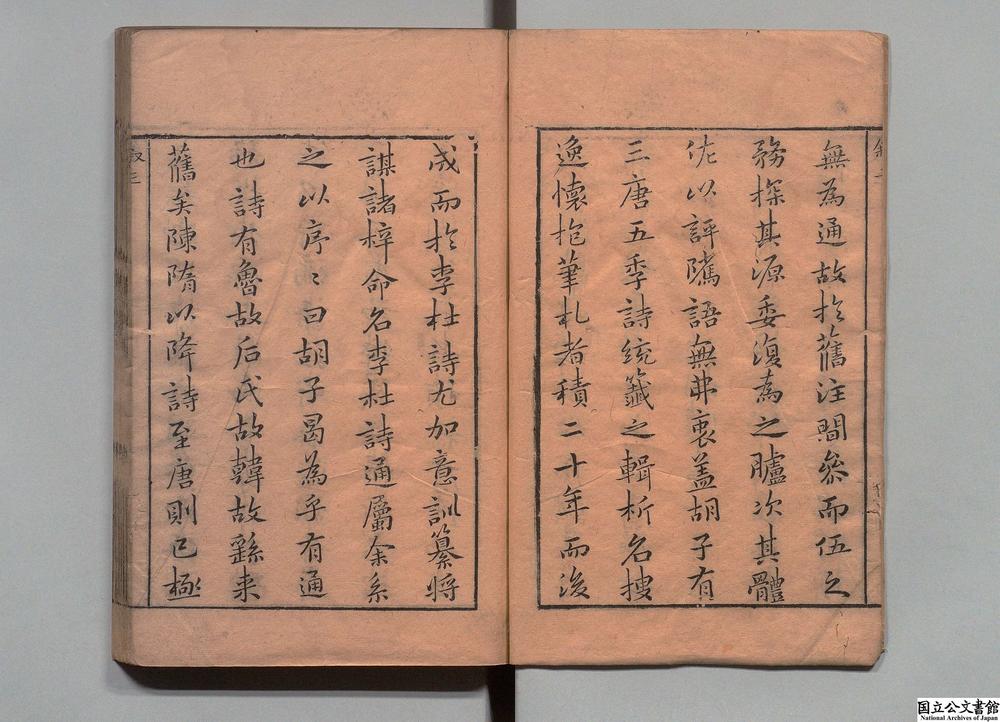 無為通故扵舊注間叅而伍之
務探其源委復為之臚次其體
佐以評隲語無弗衷盖胡子有
三唐五季詩統籤之輯析名搜
逸懐抱筆札者積二十年而後
成而扵李杜詩尤加意訓纂將
謀諸梓命名李杜詩通屬余系
之以序〻曰胡子曷為乎有通
也詩有魯故后氏故韓故繇来
舊矣陳隋以降詩至唐則已極
国立公文書館
National Archives of Japan